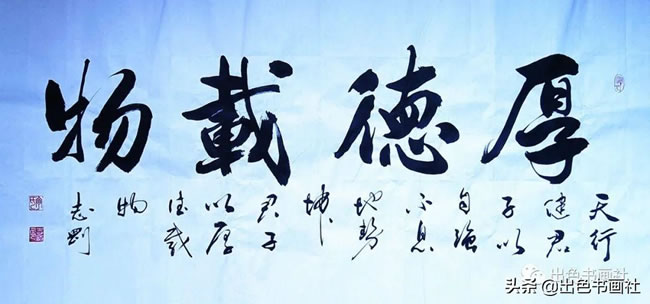 厚德載物
天行
健君
子以
自強
不息
地勢
坤
君子
以厚
德載
物
志剛
出色书画社
头条 @出色书画社